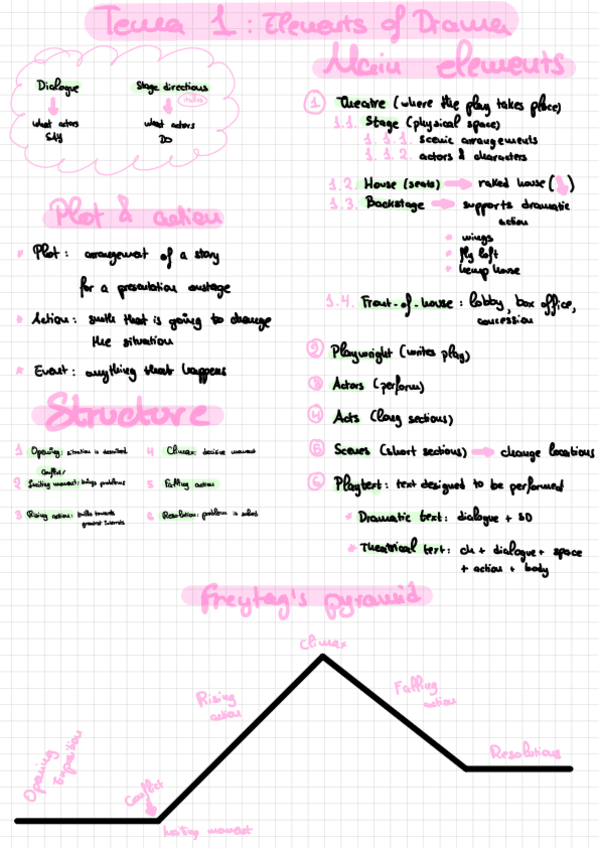 Tema 1: Elements of Drama
Dialogue
what actors
say
Stage directions
what actors
DO
Plot & action
* Plot: arrangement of a story
for a presentation onstage
* Action: smth that is going to change
the situation
* Event: anything that happens
Structure
1 Opening: situation is described
conflict/
2 Inciting moment: brings problems
3 Rising action: builds towards
greatest interests
4 Climax: decisive moment
5 Falling action
6 Resolution: problem is solved
Main elements
1 Theatre (where the play takes place)
1.1. Stage (physical space)
1.1.1. scenic arrangements
1.1.2. actors & characters
1.2. House (seats) → raked house (↓)
1.3. Backstage → supports dramatic
action
* wings
* fly loft
* hemp house
1.4. Front-of-house: lobby, box office,
concession
2 Playwright (writes play)
3 Actors (perform)
4 Acts (long sections)
5 Scenes (short sections) → change locations
6 Playtext: text designed to be performed
* Dramatic text: dialogue + SD
* Theatrical text: ch + dialogue + space
+ action + body
Freytag's pyramid
Climax
Rising
action
Falling
action
Opening
Exposition
Conflict
Inciting moment
Resolutions